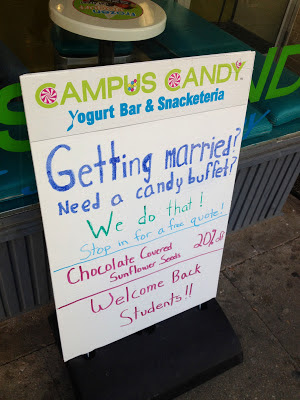 CAMPUS CANDY
Yogurt Bar & Snacketeria
Getting married?
Need a candy buffet?
We do that!
Stop in for a free quote!
Chocolate Covered 20% off
Sunflower Seeds
Welcome Back
Students!!